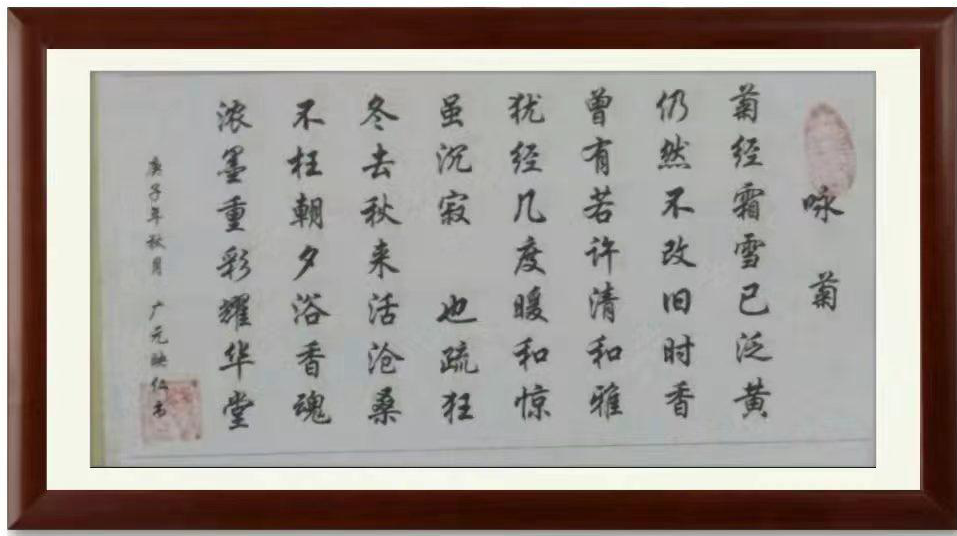 咏菊
菊经霜雪已泛黄
仍然不改旧时香
曾有若许清和雅
犹经几度暖和惊
虽沉寂 也疏狂
冬去秋来活沧桑
不枉朝夕浴香魂
浓墨重彩耀华堂
庚子年秋月 广元映仁书